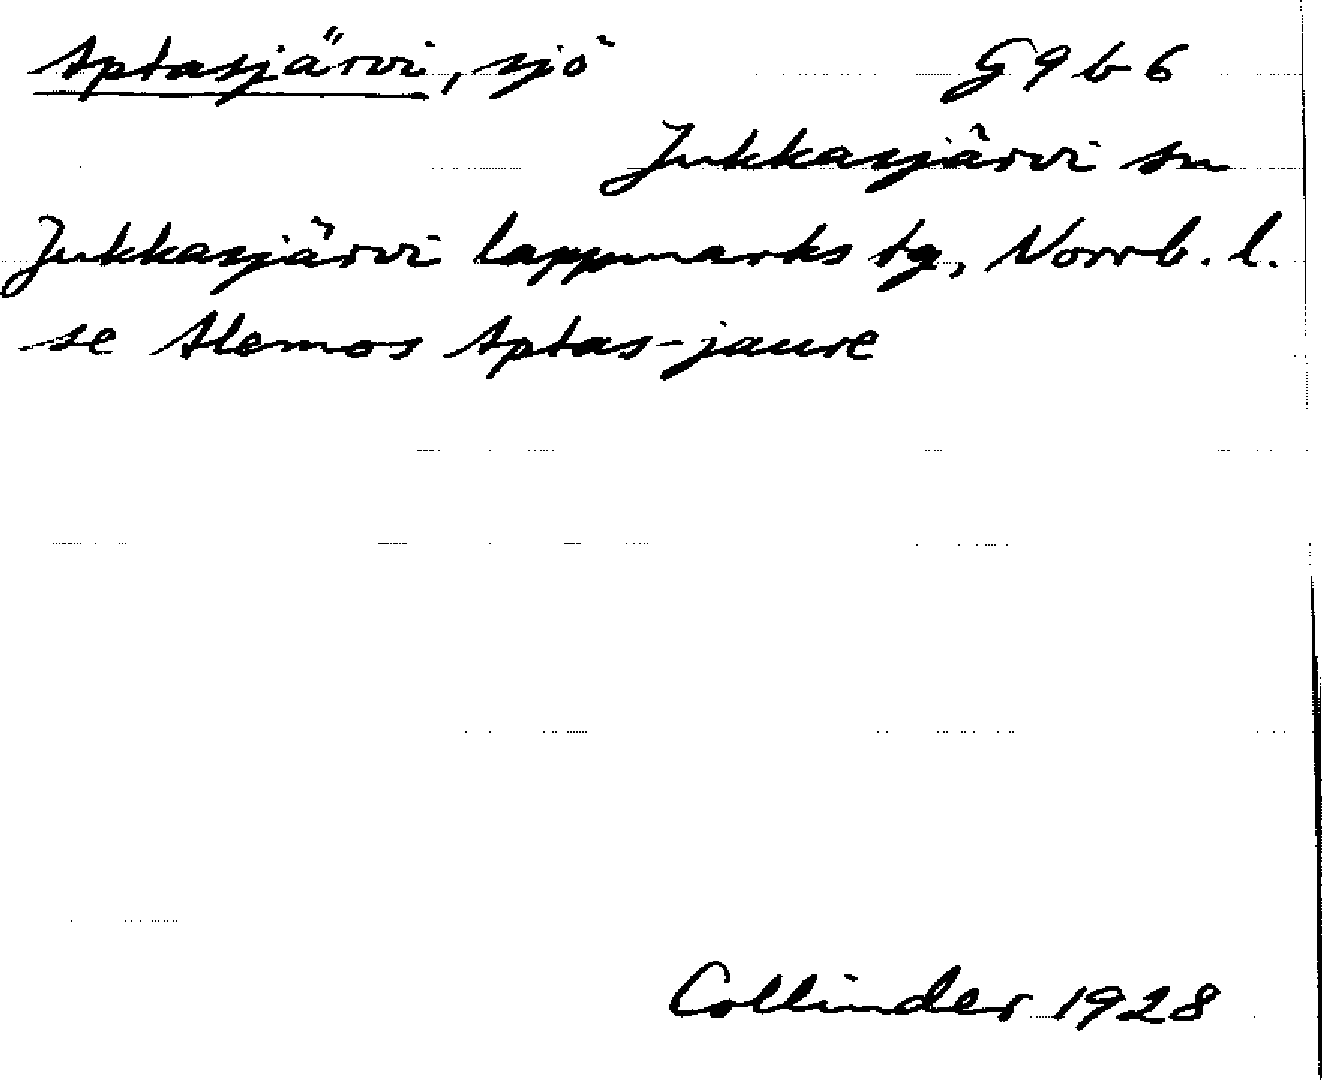 Aptasjärvi, sjö G9b6
Jukkasjärvi sn
Jukkasjärvi lappmarks tg, Norrb. l.
se Alemos Aptas-jaure
Collinder 1928